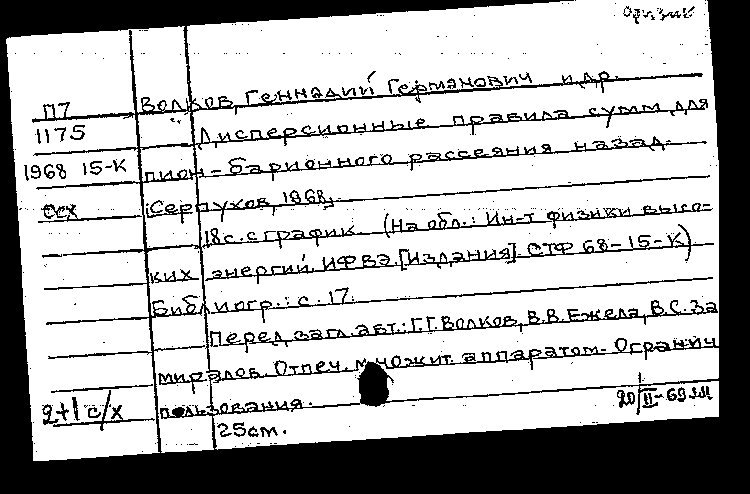 физик
П7 Волков, Геннадий Германович и др.
1175 Дисперсионные правила сумм для
1968 15-К пион-барионного рассеяния назад.
Серпухов, 1968.
18 с. с график (На обл.: Ин-т физики высо-
ких энергий. ИФВЭ. [Издания]. СТФ 68-15-К)
Библиогр.: с. 17.
Перед загл. авт.: Г.Г. Волков, В.В. Ежела, В.С. За
миралов. Отпеч. множит. аппаратом. Огранич
2+1 с/х пользования.
20/II-69
25 см.